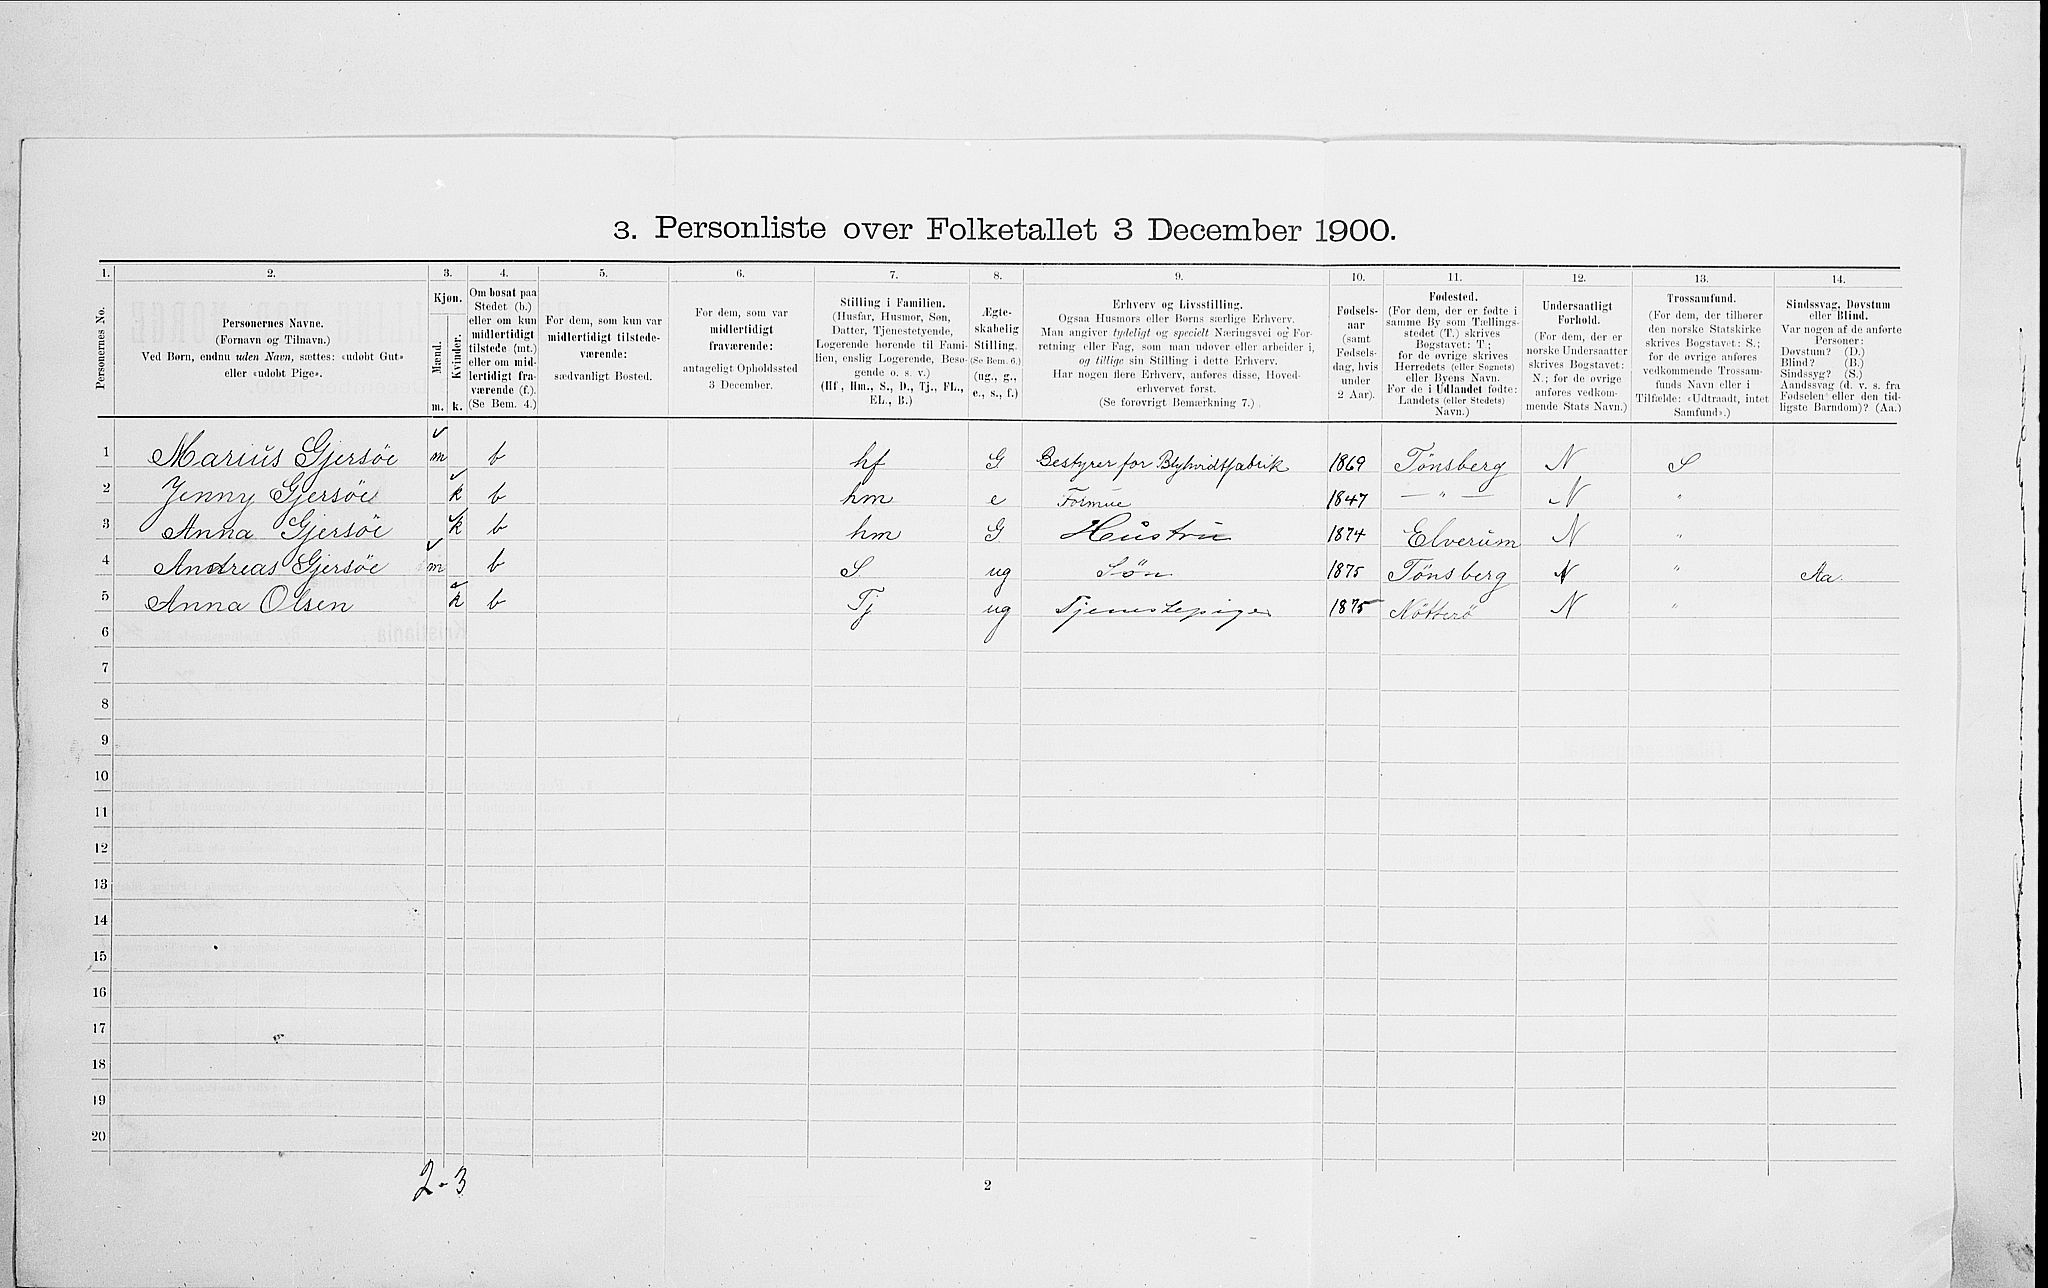 3. Personliste over Folketallet 3 December 1900.
1. 2. 3. 4. 5. 6. 7. 8. 9. 10. 11. 12. 13. 14.
Personernes No.
Personernes Navne.
(Fornavn og Tilnavn.)
Ved Børn, endnu uden Navn, sættes: «udøbt Gut»
eller «udøbt Pige».
Kjøn.
Mænd.
Kvinder.
m. k.
Om bosat paa
Stedet (b.)
eller om kun
midlertidigt
tilstede (mt.)
eller om mid-
lertidigt fra-
værende (f.).
(Se Bem. 4.)
For dem, som kun var
midlertidigt tilstede-
værende:
sædvanligt Bosted.
For dem, som var
midlertidigt
fraværende:
antageligt Opholdssted
3 December.
Stilling i Familien.
(Husfar, Husmor, Søn,
Datter, Tjenestetyende,
Logerende hørende til Fami-
lien, enslig Logerende, Besø-
gende o. s. v.)
(Hf, Hm., S., D., Tj., FL.,
EL., B.)
Ægte-
skabelig
Stilling.
(Se Bem. 6.)
(ug., g.,
e., s., f.)
Erhverv og Livsstilling.
Ogsaa Husmors eller Børns særlige Erhverv.
Man angiver tydeligt og specielt Næringsvei og For-
retning eller Fag, som man udøver eller arbeider i,
og tillige sin Stilling i dette Erhverv.
Har nogen flere Erhverv, anføres disse, Hoved-
erhvervet først.
(Se forøvrigt Bemærkning 7.)
Fødsels-
aar
(samt
Fødsels-
dag, hvis
under
2 Aar).
Fødested.
(For dem, der er fødte i
samme By som Tællings-
stedet (T.) skrives
Bogstavet: T.;
for de øvrige skrives
Herredets (eller Sognets)
eller Byens Navn.
For de i Udlandet fødte:
Landets (eller Stedets)
Navn.)
Undersaatligt
Forhold.
(For dem, der er
norske Undersaatter
skrives Bogstavet:
N.; for de øvrige
anføres vedkom-
mende Stats Navn.)
Trossamfund.
(For dem, der tilhører
den norske Statskirke
skrives Bogstavet: S.;
for de øvrige anføres
vedkommende Trossam-
funds Navn eller i
Tilfælde: «Udtraadt, intet
Samfund».)
Sindssvag, Døvstum
eller Blind.
Var nogen af de anførte
Personer:
Døvstum? (D.)
Blind? (B.)
Sindssyg? (S.)
Aandssvag (d. v. s. fra
Fødselen eller den tid-
ligste Barndom)? (Aa.)
1 Marius Gjersöe m b hf G Bestyrer for Blyhvidtfabrik 1869 Tönsberg N S
2 Jenny Gjersöe k b hm e Formue 1847 — " — N "
3 Anna Gjersöe k b hm G Hüstrü 1874 Elverum N "
4 Andreas Gjersöe m b S ug Søn 1875 Tönsberg N " Aa.
5 Anna Olsen k b Tj ug Tjenestepige 1875 Nötterö N "
6
7
8
9
10
11
12
13
14
15
16
17
18
19
20
2-3
2